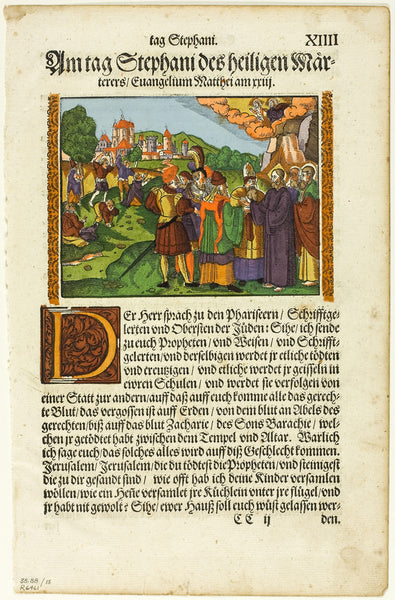 tag Stephani. XIIII
Am tag Stephani des heiligen Mär-
terers/ Euangelium Matthei am xxiij.
DEr Herr sprach zu den Phariseern/ Schrifftge-
lerten und Obersten der Jüden: Sihe/ ich sende
zu euch Propheten/ und Weisen/ und Schrifft-
gelerten/ und derselbigen werdet jr etliche tödten
und creutzigen/ und etliche werdet jr geisseln in
ewren Schulen/ und werdet sie verfolgen von
einer Statt zur andern/ auff daß auff euch komme alle das gerech-
te Blut/ das vergossen ist auff Erden/ von dem blut an Abels des
gerechten/ biß auff das blut Zacharie/ des Sons Barachie/ wel-
chen jr getödtet habt zwischen dem Tempel und Altar. Warlich
ich sage euch/ das solches alles wird auff diß Geschlecht kommen.
Jerusalem/ Jerusalem/ die du tödtest die Propheten/ und steinigest
die zu dir gesandt sind/ wie offt hab ich deine Kinder versamlen
wöllen/ wie ein Henne versamlet jre Küchlein unter jre flügel/ und
jr habt nit gewolt? Sihe/ ewer Hauß soll euch wüst gelassen wer-
CC ij den.